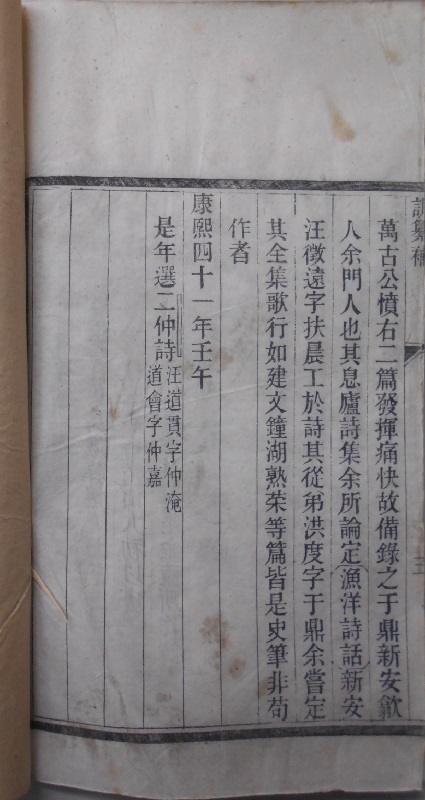 萬古公憤右二篇發揮痛快故備錄之于鼎新安歙
人余門人也其息廬詩集余所論定漁洋詩話新安
汪徵遠字扶晨工於詩其從弟洪度字于鼎余嘗定
其全集歌行如建文鐘湖熟菜等篇皆是史筆非苟
作者
康熙四十一年壬午
是年選二仲詩
汪道貫字仲淹
道會字仲嘉